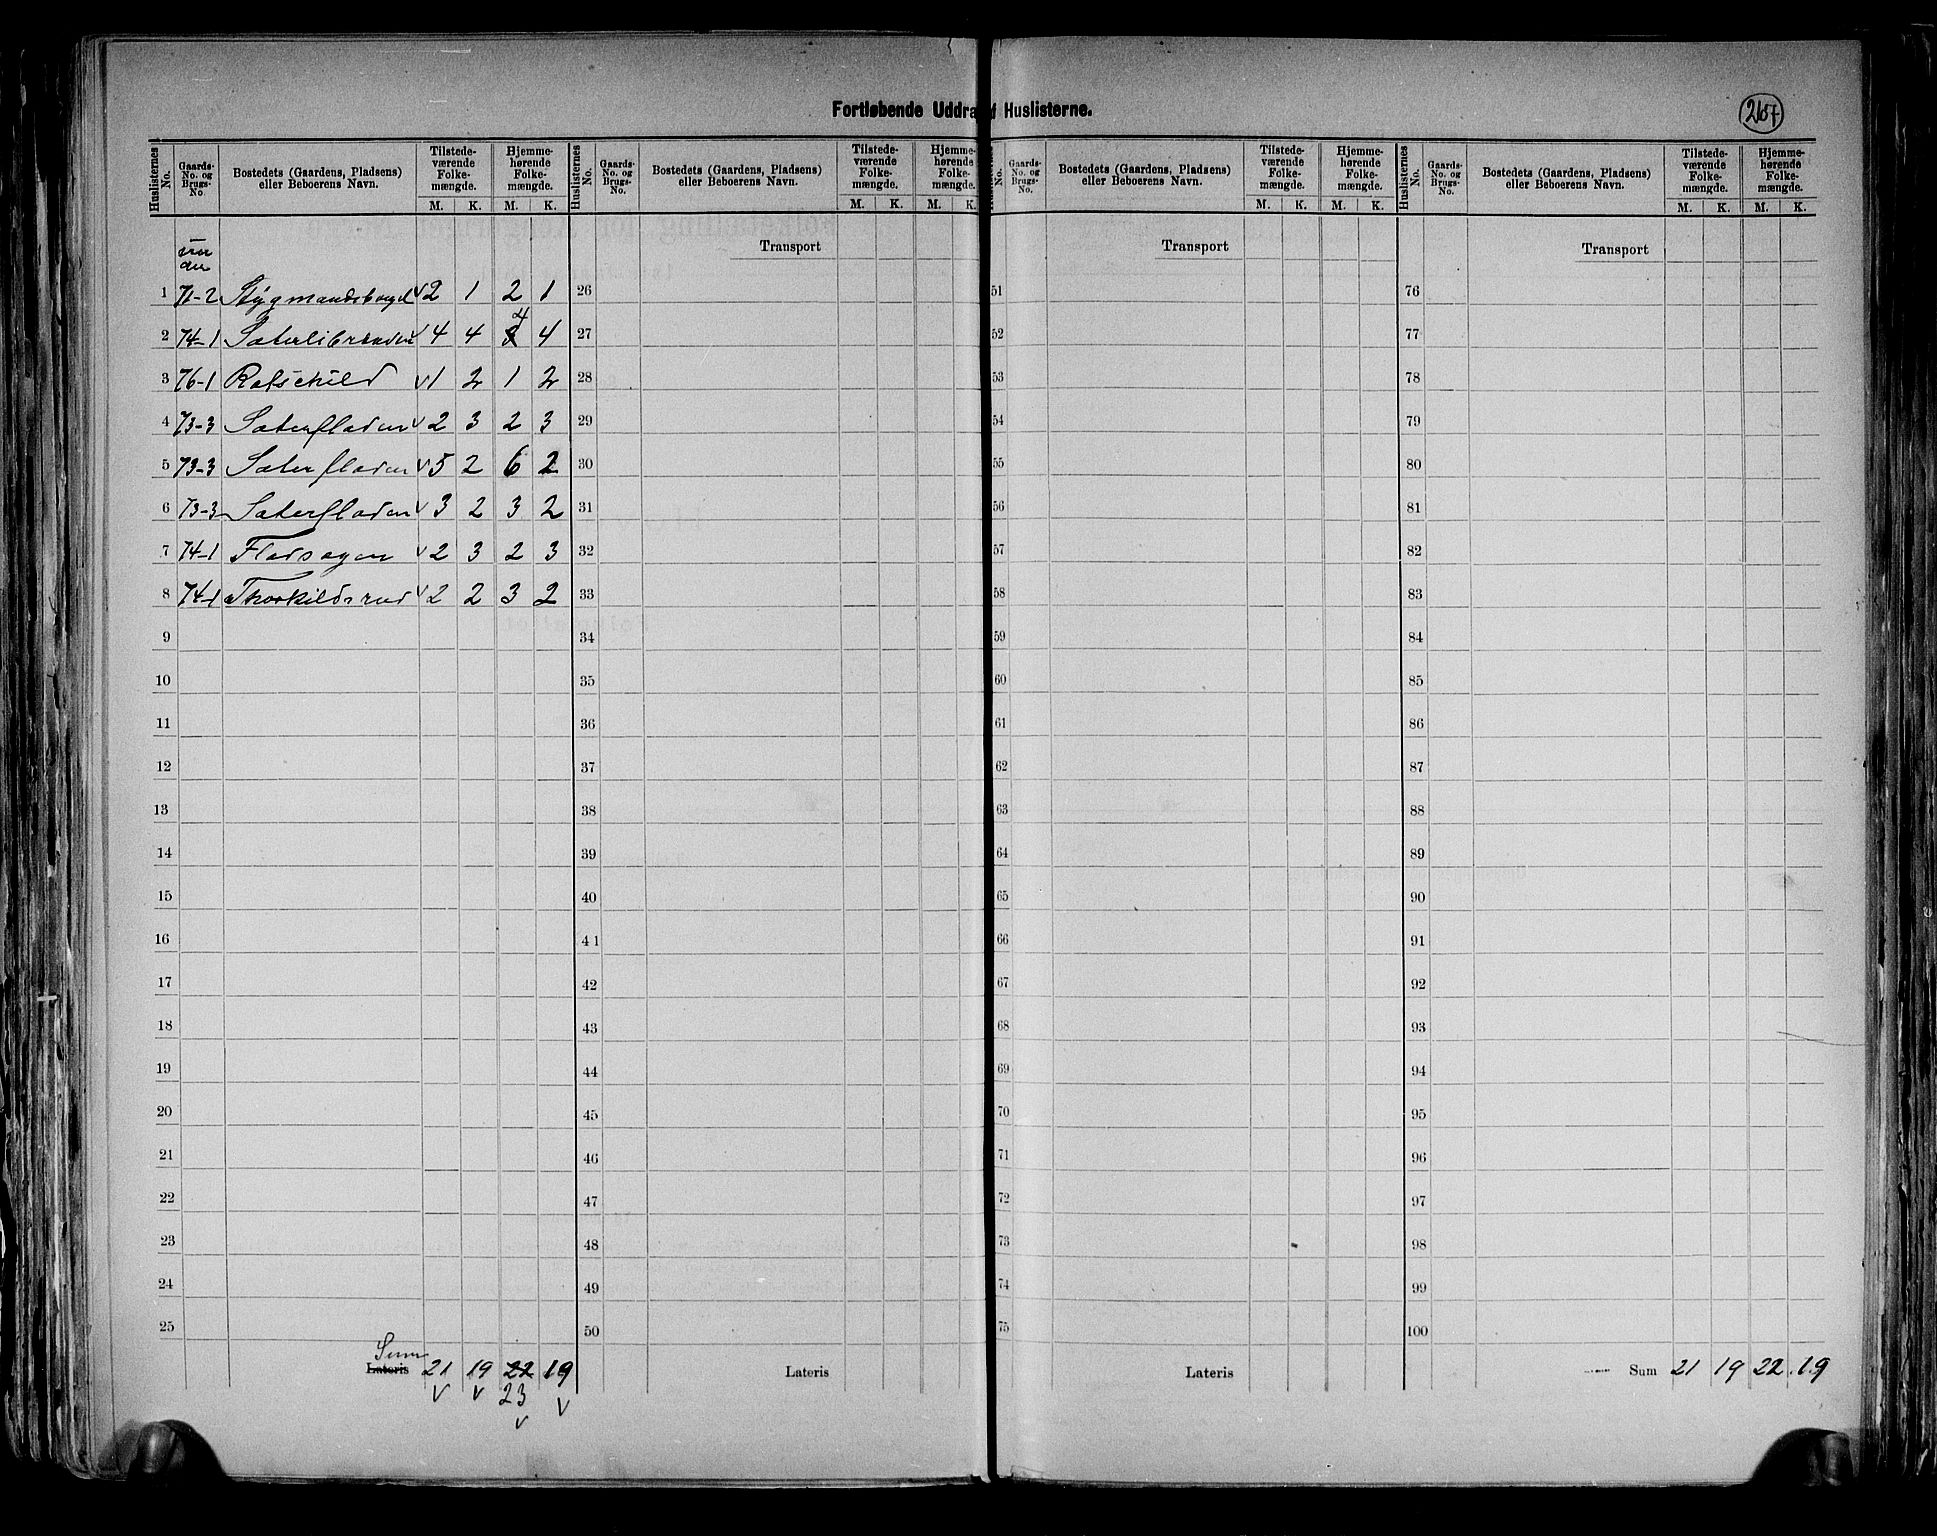 Fortløbende Uddra f Huslisterne.
267
Huslisternes No. Gaards-No. og Brugs-No. Bostedets (Gaardens, Pladsens) eller Beboerens Navn. Tilstedeværende Folkemængde. M. K. Hjemmehørende Folkemængde. M. K.
1 71-2 2 1 2 1
2 74-1 4 4 4 4
3 76-1 Rotschild 1 2 1 2
4 73-3 Sæterfladen 2 3 2 3
5 73-3 Sæterfladen 5 2 6 2
6 73-3 Sæterfladen 3 2 3 2
7 74-1 2 3 2 3
8 74-1 Thorkildsrud 2 2 3 2
9
10
11
12
13
14
15
16
17
18
19
20
21
22
23
24
25
Sum
Lateris 21 19 22 19
23
Huslisternes No. Gaards-No. og Brugs-No. Bostedets (Gaardens, Pladsens) eller Beboerens Navn. Tilstedeværende Folkemængde. M. K. Hjemmehørende Folkemængde. M. K.
Transport
26
27
28
29
30
31
32
33
34
35
36
37
38
39
40
41
42
43
44
45
46
47
48
49
50
Lateris
No. Gaards-No. og Brugs-No. Bostedets (Gaardens, Pladsens) eller Beboerens Navn. Tilstedeværende Folkemængde. M. K. Hjemmehørende Folkemængde. M. K.
Transport
51
52
53
54
55
56
57
58
59
60
61
62
63
64
65
66
67
68
69
70
71
72
73
74
75
Lateris
Huslisternes No. Gaards-No. og Brugs-No. Bostedets (Gaardens, Pladsens) eller Beboerens Navn. Tilstedeværende Folkemængde. M. K. Hjemmehørende Folkemængde. M. K.
Transport
76
77
78
79
80
81
82
83
84
85
86
87
88
89
90
91
92
93
94
95
96
97
98
99
100
Sum 21 19 22 19